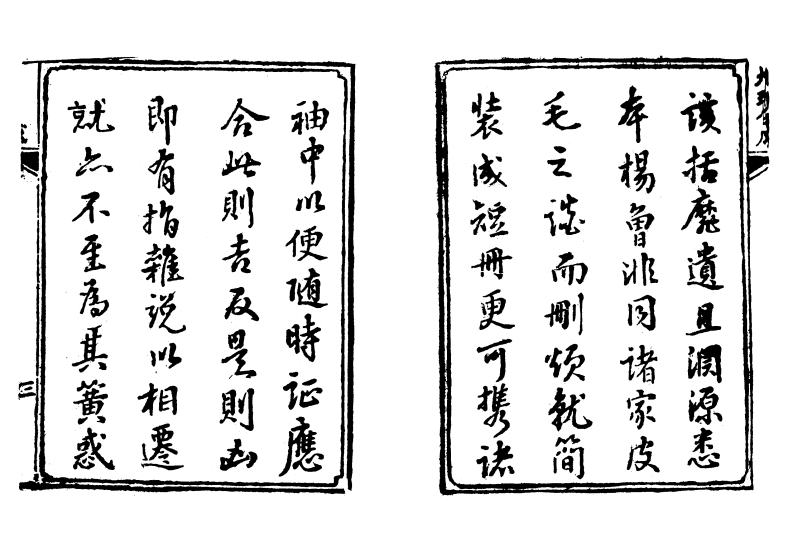 括靡遺且淵源悉
本楊曾非同諸家皮
毛之談而刪煩就簡
裝成短冊更可携諸
袖中以便随時証應
合此則吉反是則凶
即有指雜説以相遷
就亦不至為其簧惑
三